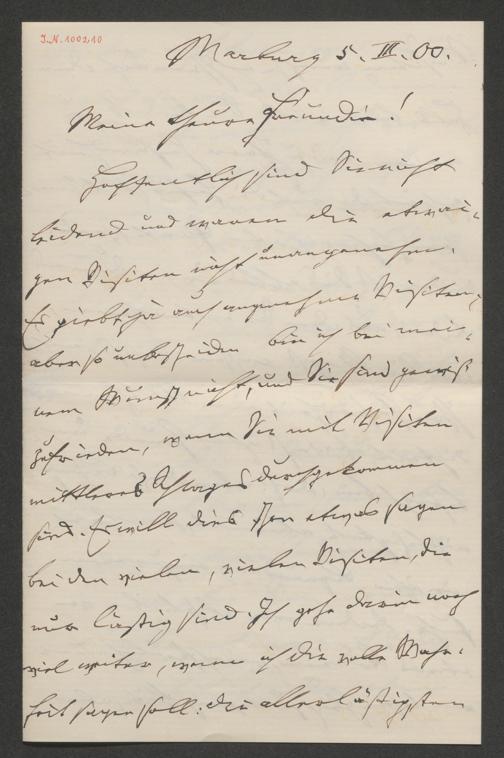 J.N. 100210
Marburg 5. III. 00.
Meine theure Freundin!
Hoffentlich sind Sie nicht
leidend und waren die etwai-
gen Visiten nicht unangenehm.
Es giebt ja auch angenehme Visiten,
aber so unbescheiden bin ich bei mei-
nem Wunsch nicht, und Sie sind gewiß
zufrieden, wenn Sie mit Visiten
mittleren Schlages durchgekommen
sind. Es will dies schon etwas sagen
bei den vielen, vielen Visiten, die
nur lästig sind. Ich gehe darin noch
viel weiter, wenn ich die volle Wahr-
heit sagen soll: die allerlästigsten